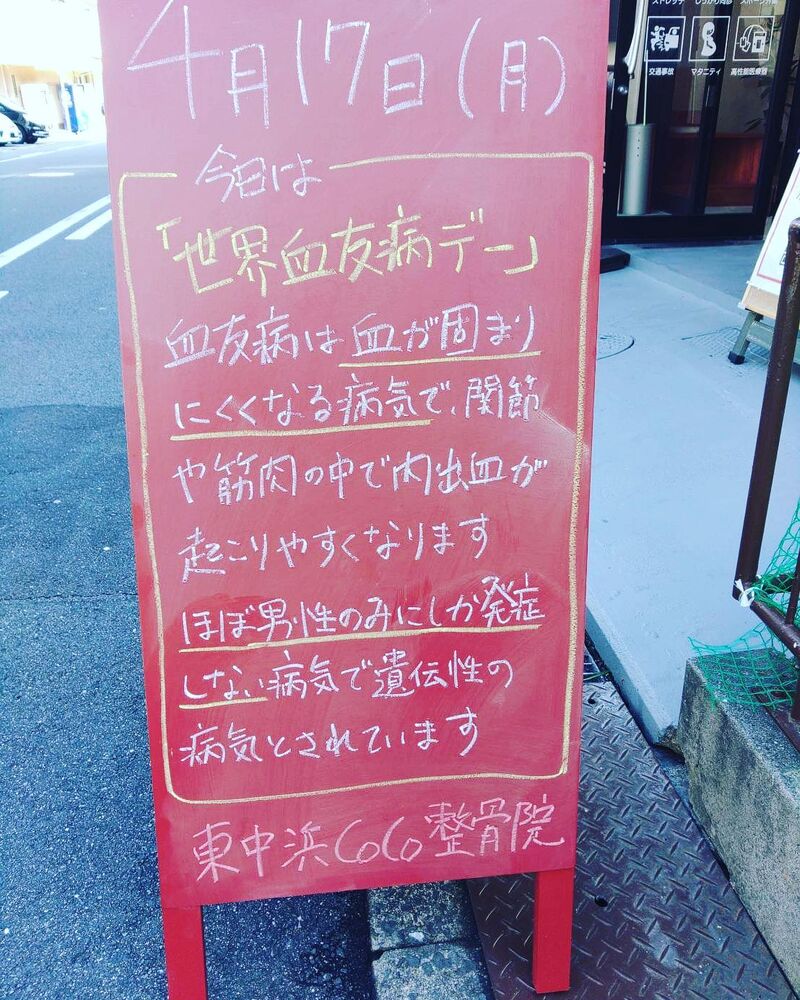 4月17日(月)
今日は
「世界血友病デー」
血友病は血が固まり
にくくなる病気で、関節
や筋肉の中で内出血が
起こりやすくなります
ほぼ男性のみにしか発症
しない病気で遺伝性の
病気とされています
東中浜CoCo整骨院
交通事故
マタニティ
高性能医療器